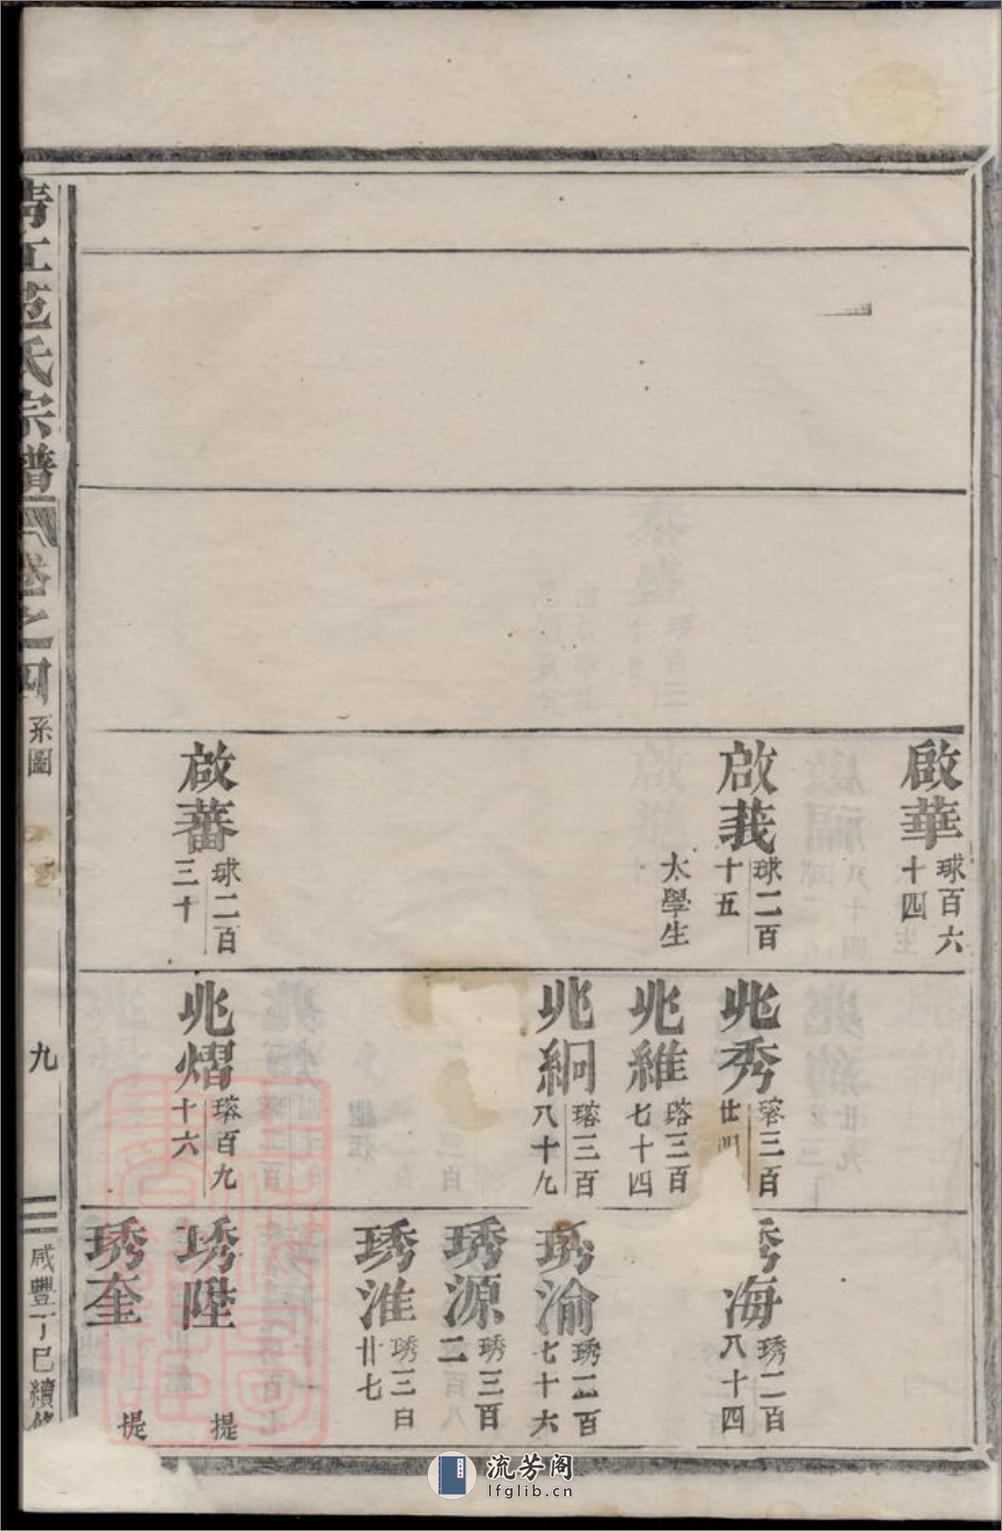 啟華
球百六
十四
啟莪
球二百
十五
太學生
啟蕃
球二百
三十
兆秀
瑹三百
廿
兆維
瑹三百
七十四
兆絅
瑹三百
八十九
兆熠
瑹百九
十六
海
琇二百
八十四
琇渝
琇二百
七十六
琇源
琇三百
二
琇淮
琇三百
廿七
琇陞
提
琇奎
提
清江范氏宗譜
卷之四
系圖
九
咸豐丁巳續修
流芳阁
lfglib.cn